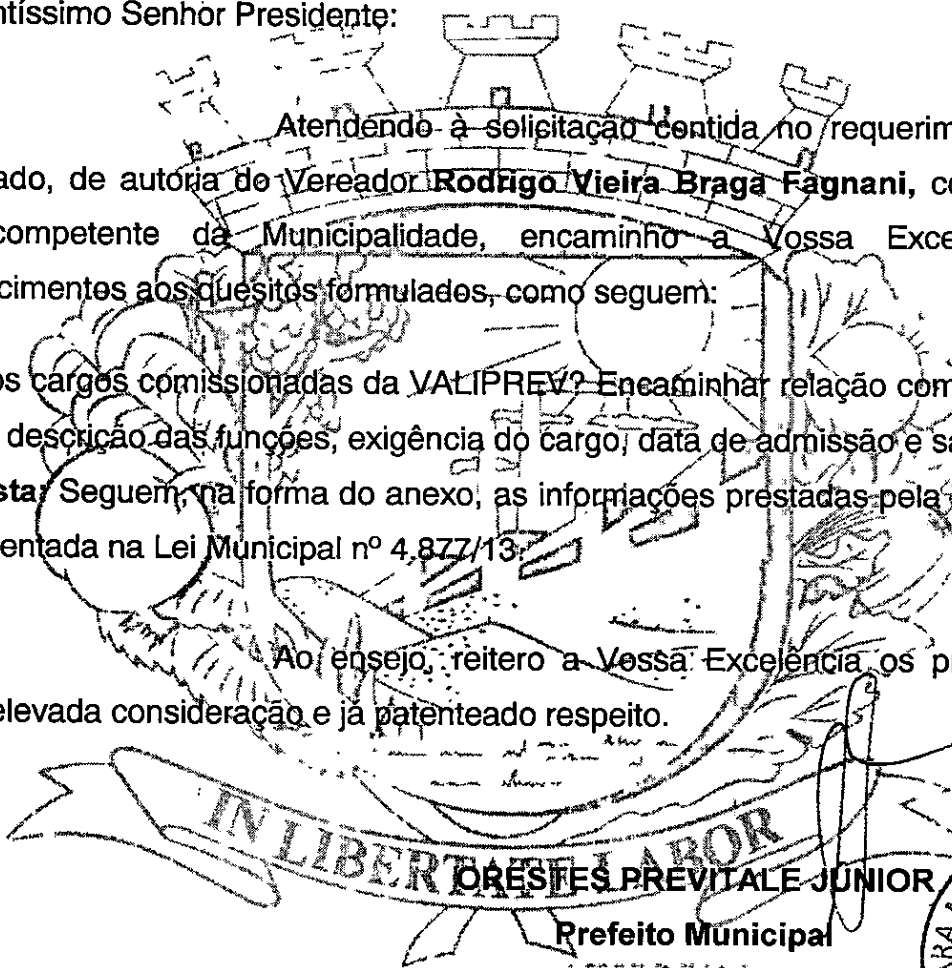 ntíssimo Senhor Presidente:
Atendendo à solicitação contida no requerim
ado, de autoria do Vereador Rodrigo Vieira Braga Fagnani, co
competente da Municipalidade, encaminho a Vossa Exce
cimentos aos quesitos formulados, como seguem:
os cargos comissionadas da VALIPREV? Encaminhar relação com
descrição das funções, exigência do cargo, data de admissão e sa
sta: Seguem, na forma do anexo, as informações prestadas pela
entada na Lei Municipal nº 4.877/13.
Ao ensejo, reitero a Vossa Excelência os pr
elevada consideração e já patenteado respeito.
IN LIBERTATE LABOR
ORESTES PREVITALE JUNIOR
Prefeito Municipal
ARA